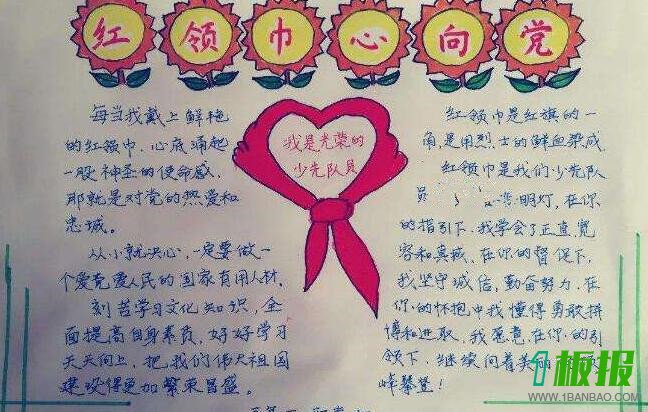 红领巾心向党
每当我戴上鲜艳
的红领巾,心底涌起
一股神圣的使命感,
那就是对党的热爱和
忠诚。
从小就决心,一定要做一
个爱党爱人民的国家有用人材,
刻苦学习文化知识,全
面提高自身素质,好好学习
天天向上,把我们伟大祖国
建设得更加繁荣昌盛。
我是光荣的
少先队员
红领巾是红旗的一
角,是用烈士的鲜血染成
红领巾是我们少先队
员 明灯,在你
的指引下,我学会了正直、宽
容和真诚、在你的督促下,
我坚守诚信,勤奋努力、在
你的怀抱中我懂得勇敢拼
博和进取,我愿意在你的引
领下,继续向着美丽
峰攀登!
1板报
WWW.1BANBAO.COM